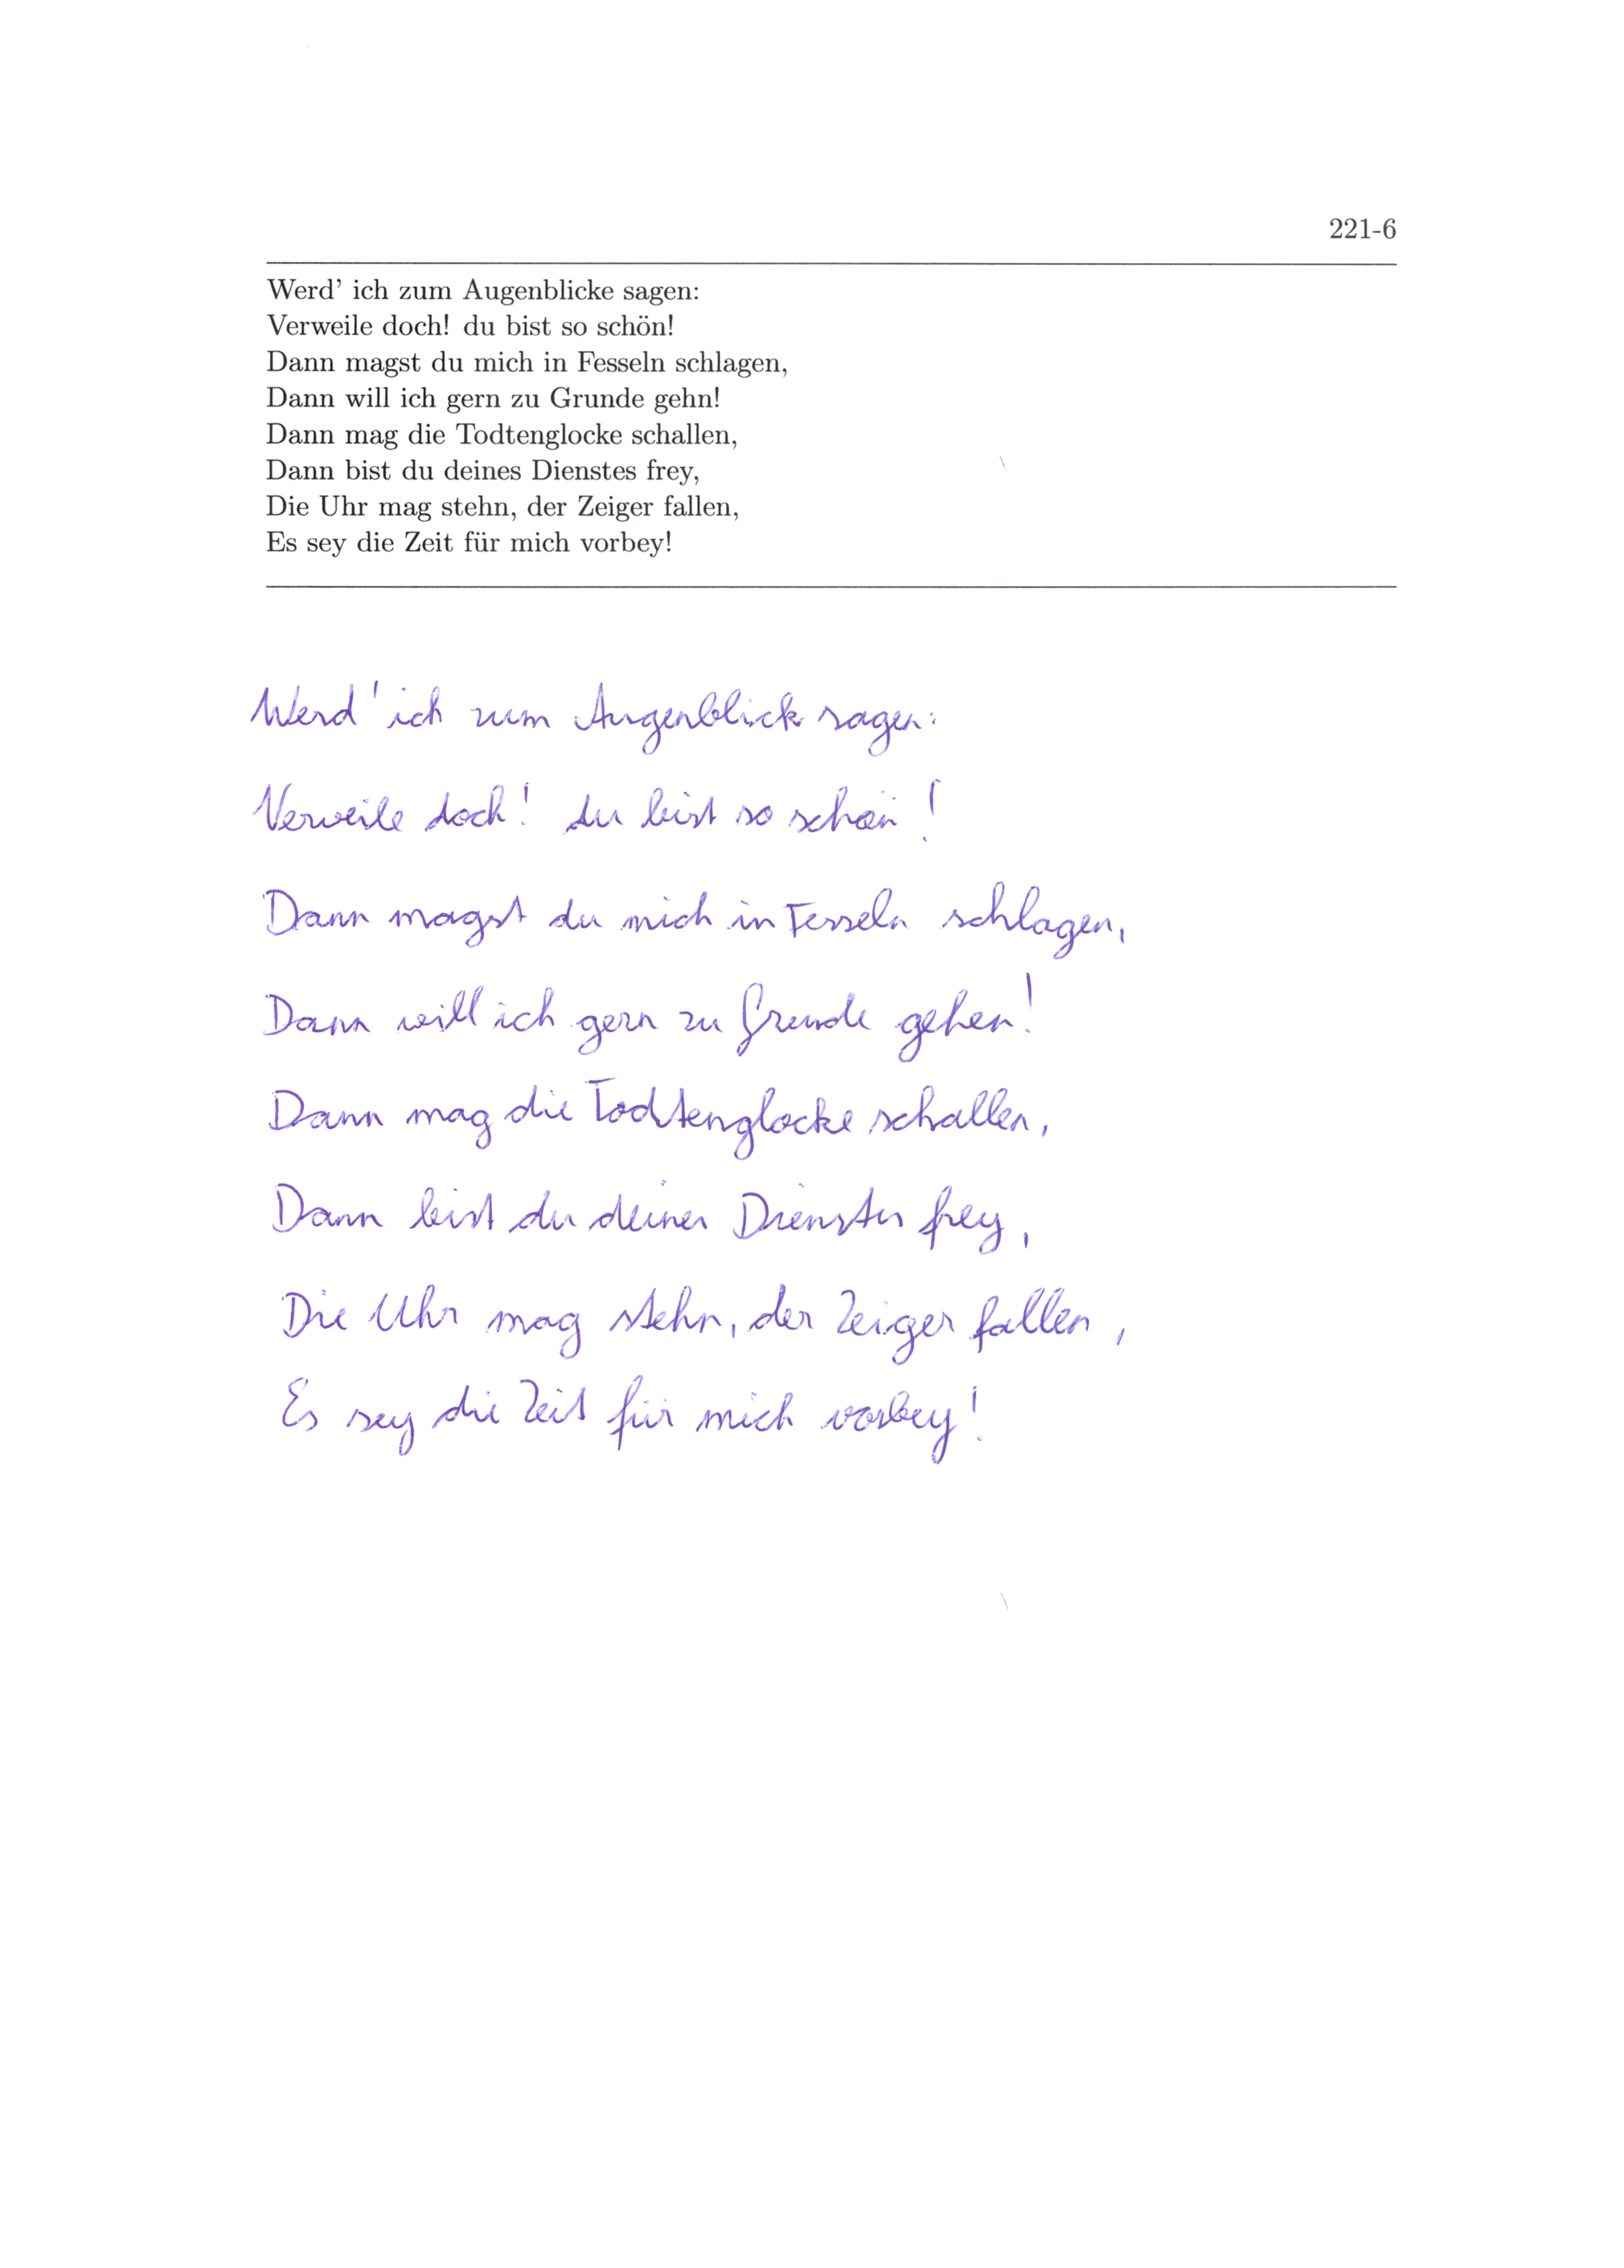 221-6
Werd' ich zum Augenblicke sagen:
Verweile doch! du bist so schön!
Dann magst du mich in Fesseln schlagen,
Dann will ich gern zu Grunde gehn!
Dann mag die Todtenglocke schallen,
Dann bist du deines Dienstes frey,
Die Uhr mag stehn, der Zeiger fallen,
Es sey die Zeit für mich vorbey!
Werd' ich zum Augenblick sagen:
Verweile doch! du bist so schön!
Dann magst du mich in Fesseln schlagen,
Dann will ich gern zu Grunde gehen!
Dann mag die Todtenglocke schallen,
Dann bist du deines Dienstes frey,
Die Uhr mag stehn, der Zeiger fallen,
Es sey die Zeit für mich vorbey!